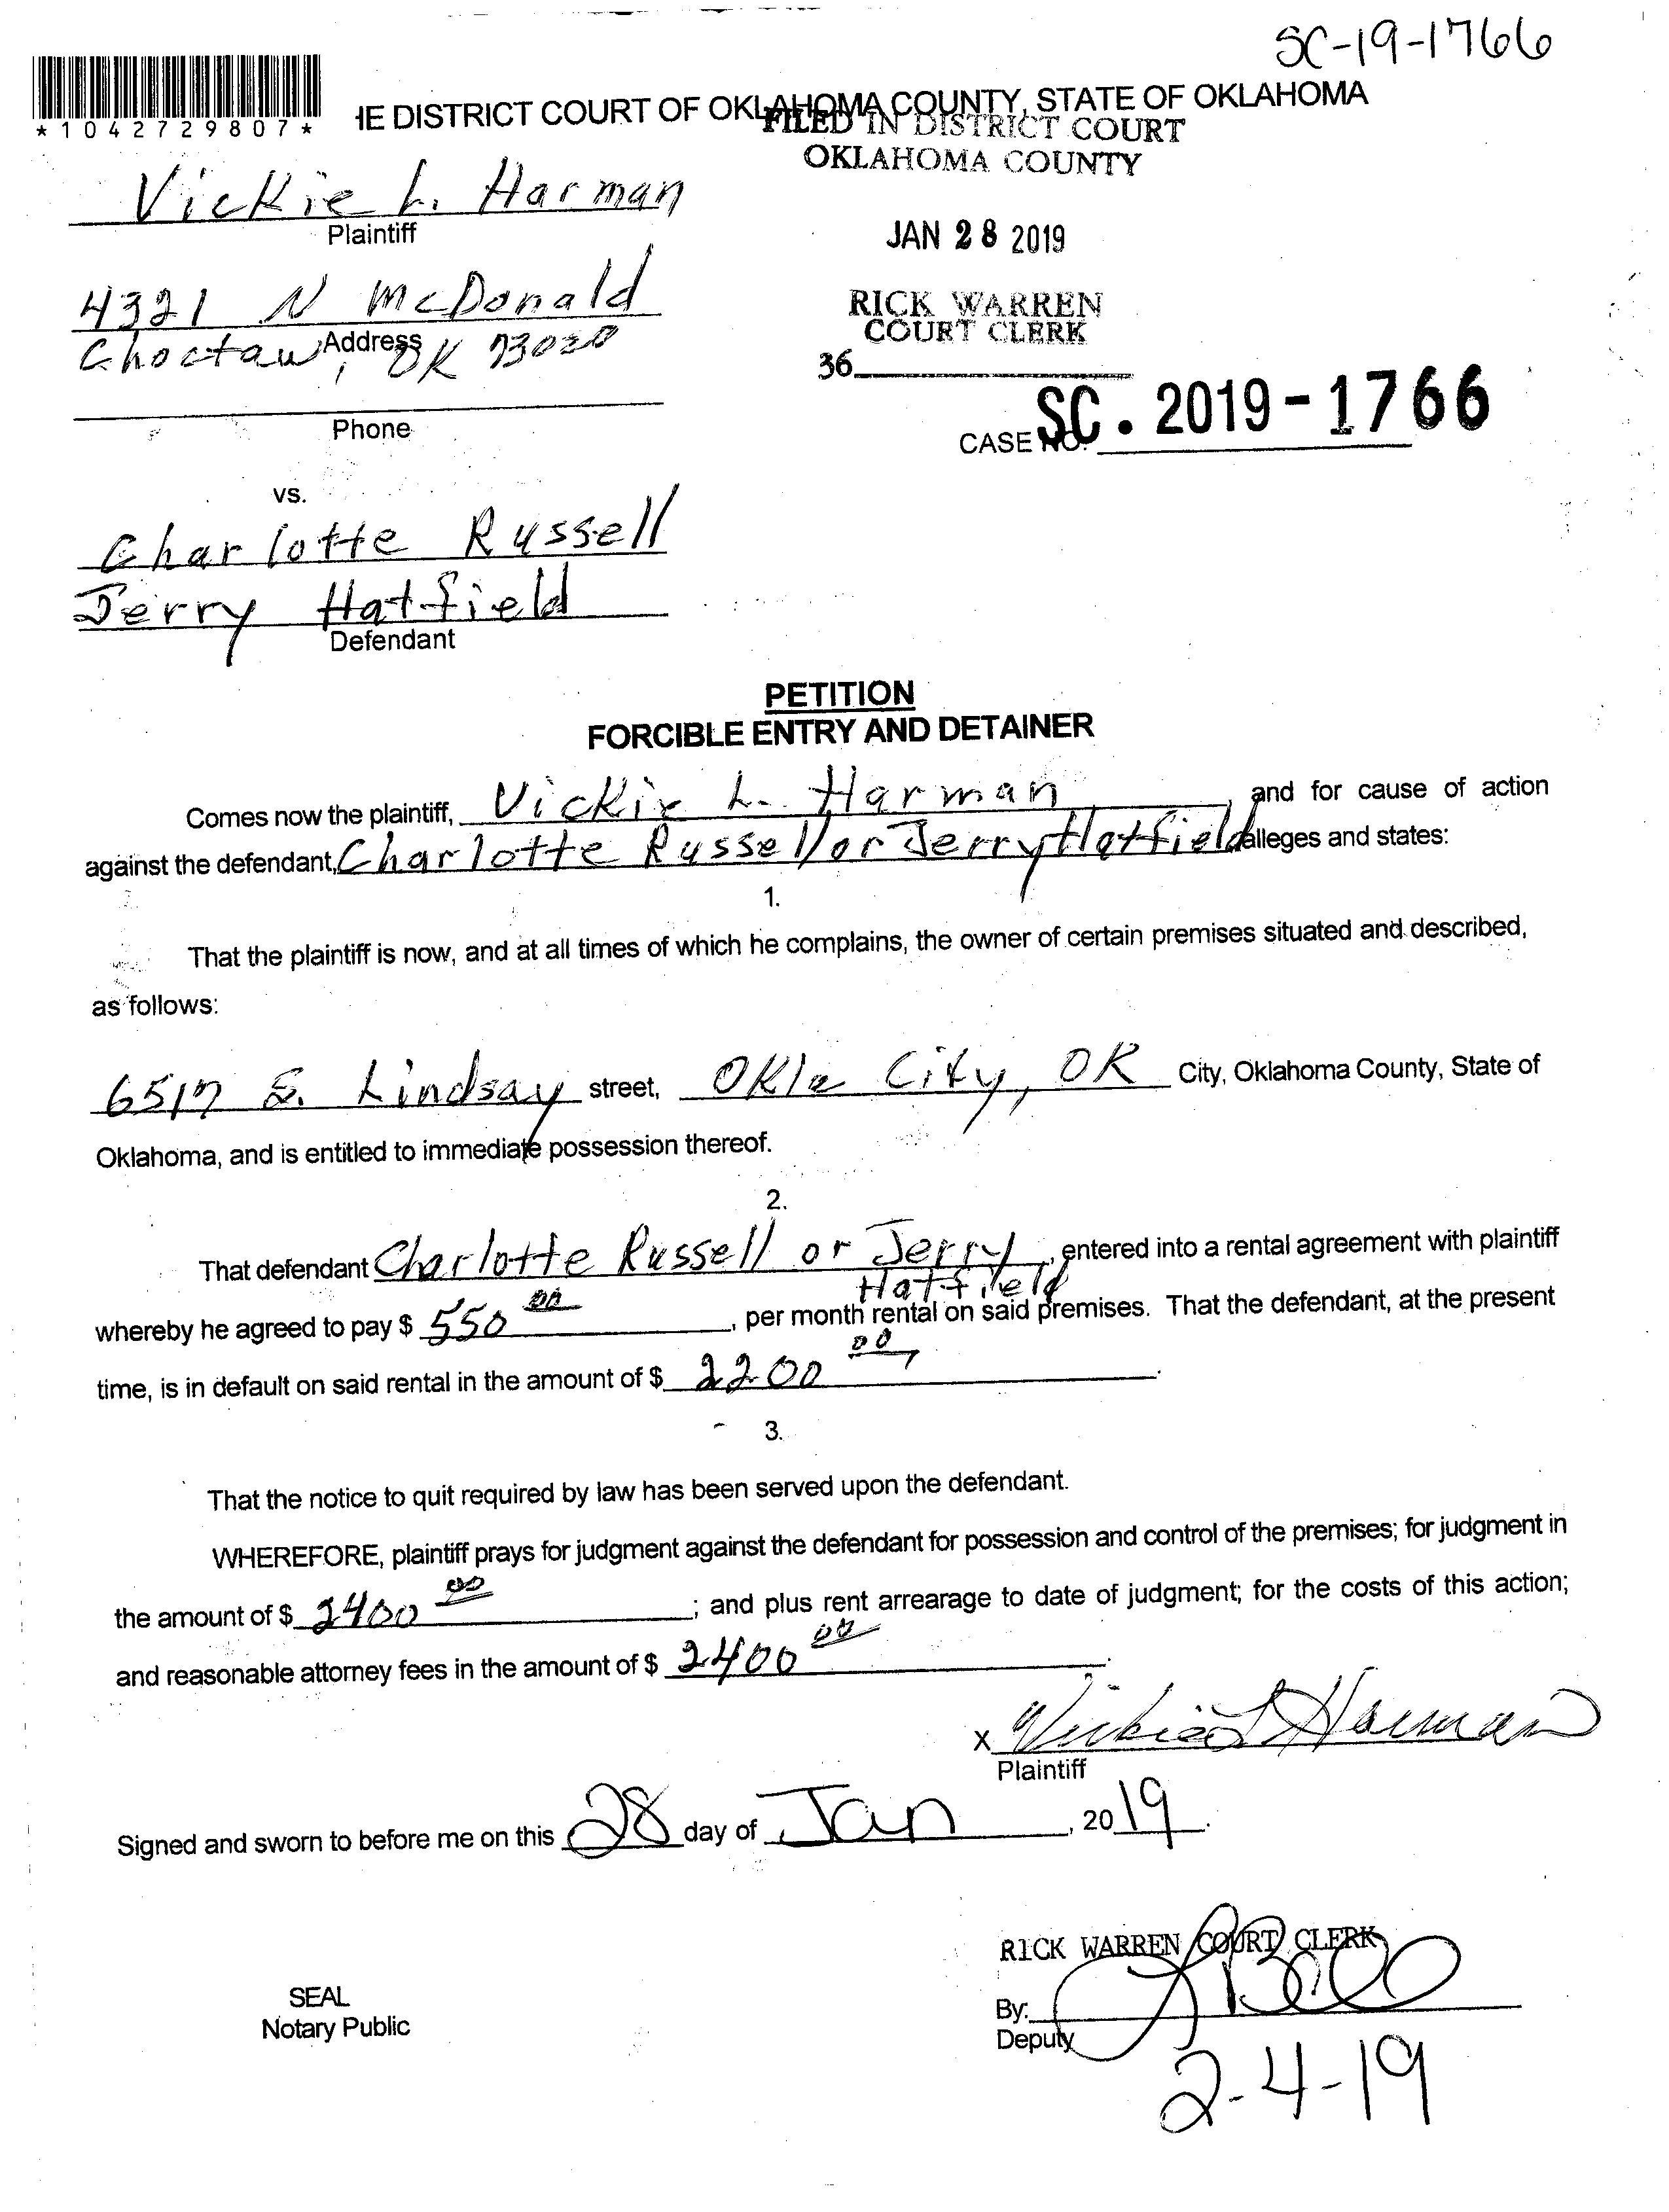 SC-19-1766
*1042729807*
IE DISTRICT COURT OF OKLAHOMA COUNTY, STATE OF OKLAHOMA
FILED IN DISTRICT COURT
OKLAHOMA COUNTY
Vickie L. Harman
Plaintiff
JAN 28 2019
4321 N McDonald
Address
Choctaw, OK 73020
RICK WARREN
COURT CLERK
36
Phone
CASE NO. SC. 2019-1766
vs.
Charlotte Russell
Jerry Hatfield
Defendant
PETITION
FORCIBLE ENTRY AND DETAINER
Comes now the plaintiff, Vickie L. Harman, and for cause of action
against the defendant, Charlotte Russell or Jerry Hatfield alleges and states:
1.
That the plaintiff is now, and at all times of which he complains, the owner of certain premises situated and described,
as follows:
6517 S. Lindsay street, Okla City, OK City, Oklahoma County, State of
Oklahoma, and is entitled to immediate possession thereof.
2.
That defendant Charlotte Russell or Jerry Hatfield, entered into a rental agreement with plaintiff
whereby he agreed to pay $ 550 00, per month rental on said premises. That the defendant, at the present
time, is in default on said rental in the amount of $ 2200 00.
3.
That the notice to quit required by law has been served upon the defendant.
WHEREFORE, plaintiff prays for judgment against the defendant for possession and control of the premises; for judgment in
the amount of $ 2400 00; and plus rent arrearage to date of judgment; for the costs of this action;
and reasonable attorney fees in the amount of $ 2400 00.
X Vickie L Harman
Plaintiff
Signed and sworn to before me on this 28 day of Jan, 2019.
RICK WARREN COURT CLERK
SEAL
Notary Public
By:
Deputy
2-4-19